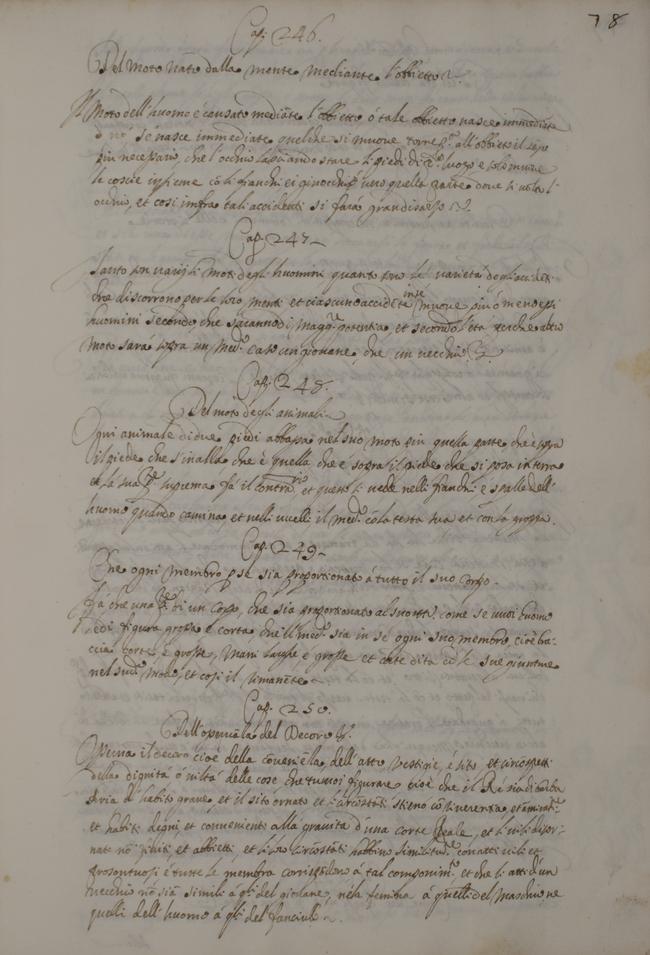 78
Cap. 246.
Del Moto nato dalla mente mediante l'obbietto
Il Moto dell'huomo è causato mediãte l'obbietto ò tale obbietto nasce immediate
ò nò, se nasce immediate quel che si muove torce pª all'obbietto il senso
più necessario, che l'occhio lasciando stare li piedi al pº luogo e solo muove
le coscie insieme cõ li fianchi ei ginocchi verso quella parte dove si volta l'
occhio, et così in fra tali accidenti si farà gran discorso
Cap. 247
Tanto son varij li moti degli huomini quanto sono le varietà degli accidẽti
che discorrono per le loro menti et ciascuno accidẽte in se muove più ò meno essi
huomini secondo, che saranno di magg.re potentia, et secondo l'età perche altro
moto farà sopra un med.º caso un giovane, che un vecchio
Cap. 248.
Del moto degli animali
Ogni animale di due piedi abbassa nel suo moto più quella parte che è sopra
il piede che s'inalza che è quella che è sopra il piede che si posa in terra
et la sua pte suprema fà il contrario et questo si vede nelli fianchi e spalle dell'
huomo quando camina, et nelli uccelli il med.º cõ la testa sua et con la groppa.
Cap. 249
Che ogni membro p se sia proportionato à tutto il suo corpo.
Fà che una pte di un corpo, che sia proportionato al suo tutto, come se un huomo
è di figura grossa e corta che il med.º sia in se ogni suo membro, cioè brac-
cia corte e grosse, mani larghe e grosse et corte dita cõ le sue giunture
nel sud.º modo, et così il rimanẽte
Cap. 250.
Dell'osservãza del Decoro
Osserva il decoro cioè della cõveniẽza, dell'atto vestigie, e sito et circospetti
della dignità ò viltà delle cose, che tu vuoi figurare cioè che il Re sia di barba
Aria et habito grave, et il sito ornato et li circostãti stieno cõ riverenza, et ammirat.ne
et habiti degni, et convenienti alla gravità d'una corte Reale, et li vili disor-
nati nõ finiti et abbietti, et li loro circostãti habbino similitud.e con atti vili et
prosontuosi e tutte le membra corrispõdino à tal componim.to et che li atti d'un
vecchio nõ siã simili à gli del giovane, nè la femina à quelli del Maschio ne
quelli dell'huomo à gli del fanciullo